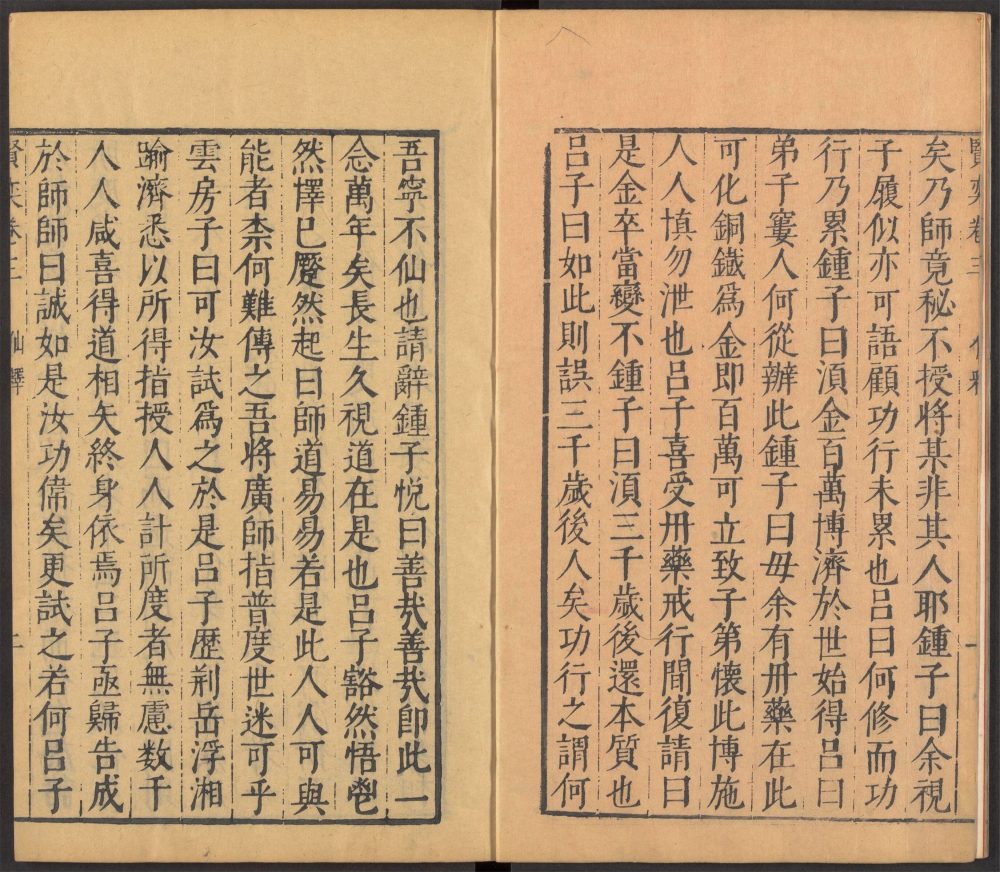 賢奕卷三 仙釋 一
矣乃師竟秘不授將某非其人耶鍾子曰余視
子履似亦可語顧功行未累也呂曰何修而功
行乃累鍾子曰湏金百萬博濟於世始得呂曰
弟子窶人何從辦此鍾子曰毋余有丹藥在此
可化銅鐵爲金即百萬可立致子第懷此博施
人人慎勿泄也呂子喜受丹藥戒行間復請曰
是金卒當變不鍾子曰湏三千歲後還本質也
呂子曰如此則誤三千歲後人矣功行之謂何
吾寧不仙也請辭鍾子悅曰善哉善哉即此一
念萬年矣長生久視道在是也呂子豁然悟鬯
然懌已蹷然起曰師道易易若是此人人可與
能者柰何難傳之吾將廣師指普度世迷可乎
雲房子曰可汝試爲之於是呂子歷荆岳浮湘
踰濟悉以所得指授人人計所度者無慮数千
人人咸喜得道相矢終身依焉呂子亟歸告成
於師師曰誠如是汝功偉矣更試之若何呂子
賢奕卷三 仙釋 二